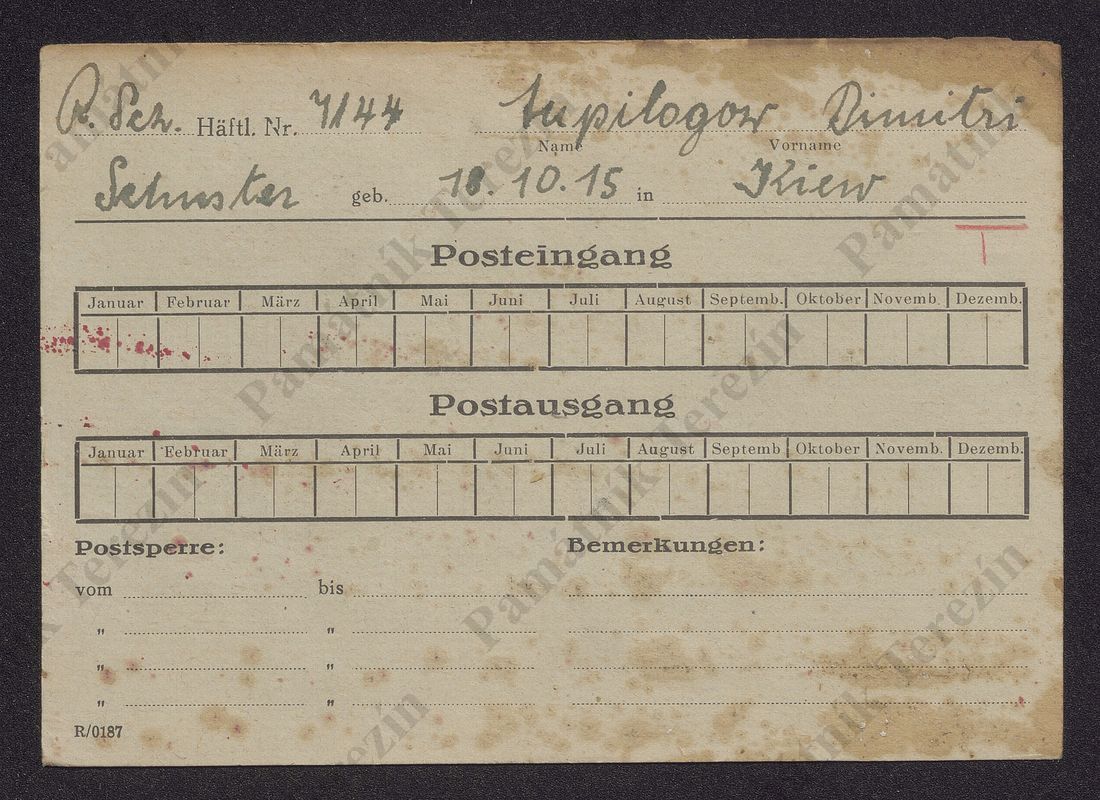 R. Sch. Häftl. Nr. 7144 Tupilogow Dimitri
Name Vorname
Schuster geb. 18.10.15 in Kiew
T
Posteingang
Januar Februar März April Mai Juni Juli August Septemb. Oktober Novemb. Dezemb.
Postausgang
Januar Februar März April Mai Juni Juli August Septemb Oktober Novemb. Dezemb.
Postsperre: Bemerkungen:
vom bis
„ „
„ „
„ „
R/0187
Památník Terezín